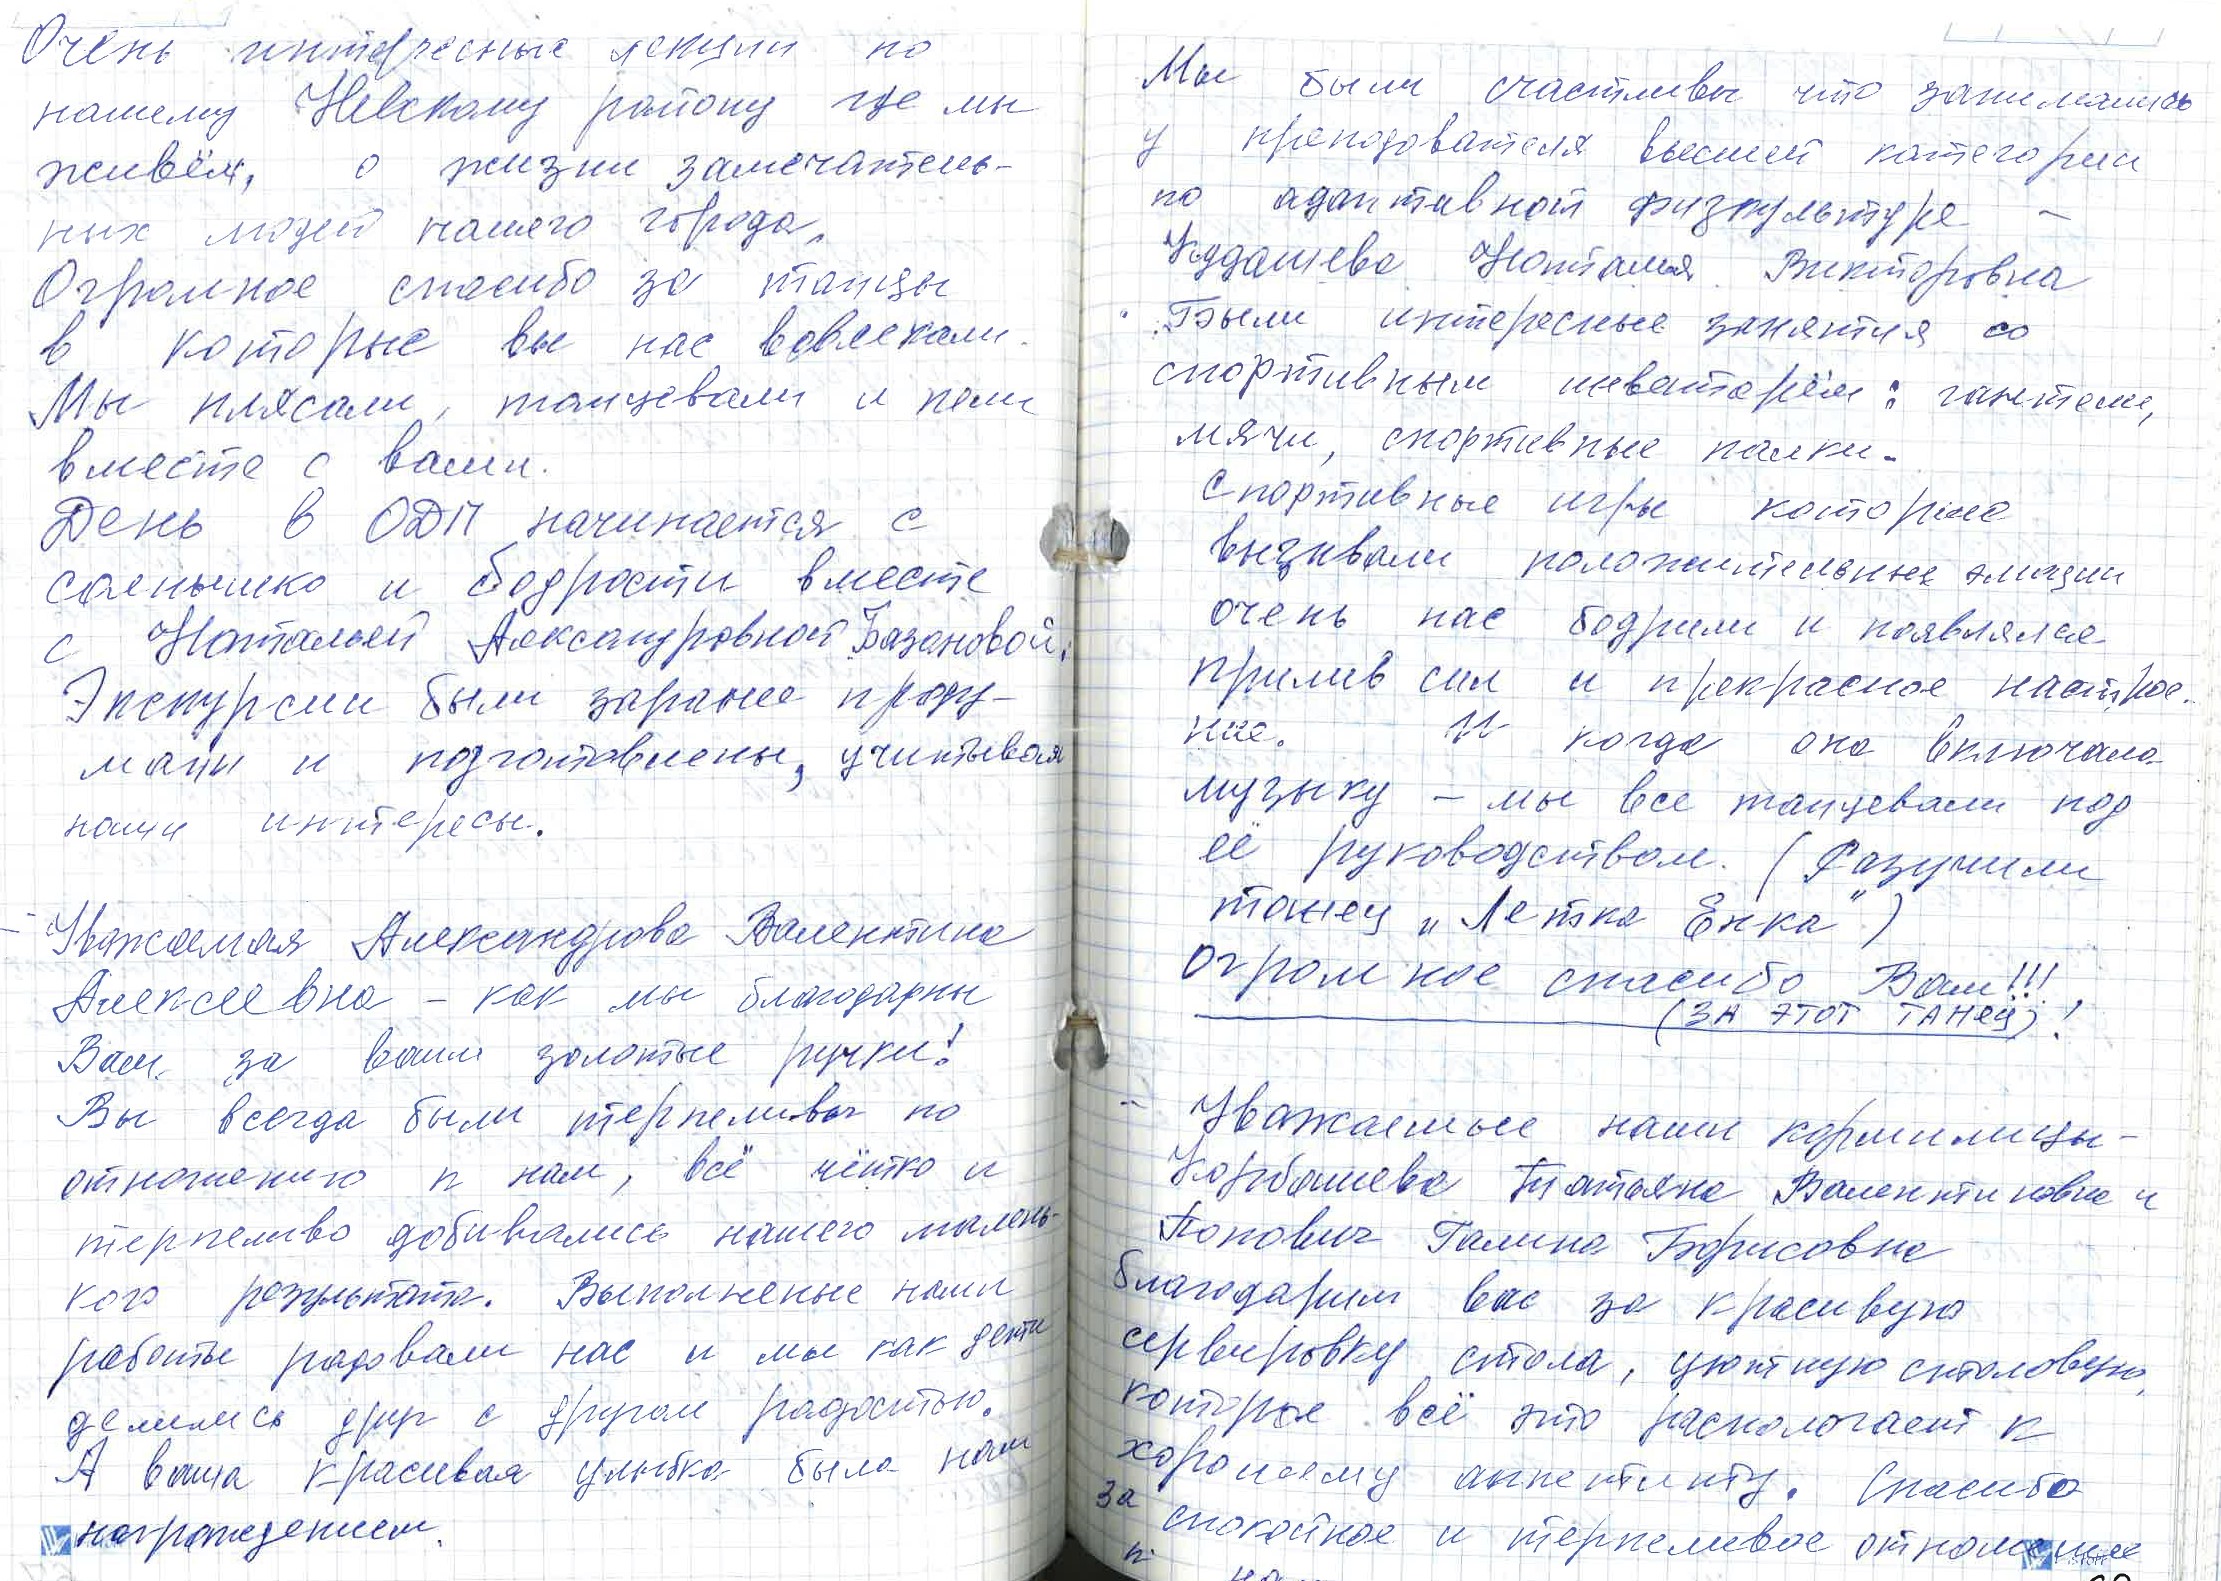 Очень интересные лекции по
нашему Невскому району где мы
живём, о жизни замечатель-
ных людей нашего города.
Огромное спасибо за танцы
в которые вы нас вовлекали.
Мы плясали, танцевали и пели
вместе с вами.
День в ОДП начинается с
солнышко и бодрости вместе
с Натальей Александровной Базановой.
Экскурсии были заранее проду-
маны и подготовлены, учитывая
наши интересы.
- Уважаемая Александрова Валентина
Алексеевна - как мы благодарны
Вам за ваши золотые ручки!
Вы всегда были терпеливы по
отношению к нам, всё чётко и
терпеливо добивались нашего малень-
кого результата. Выполненые нами
работы радовали нас и мы как дети
делились друг с другом радостью.
А ваша красивая улыбка была нам
награждением.
Мы были счастливы что занимались
у преподователя высшей категории
по адаптивной физкультуре -
Кудашева Наталья Викторовна
Были интересные занятия со
спортивным инвентарём: гантели,
мячи, спортивные палки.
Спортивные игры которые
вызывали положительные эмоции
очень нас бодрили и появлялся
прилив сил и прекрасное настрое-
ние. И когда она включала
музыку - мы все танцевали под
её руководством. (Разучили
танец „Летка Енка")
Огромное спасибо Вам!!!
(ЗА ЭТОТ ТАНЕЦ)!
- Уважаемые наши кормилицы -
Корбашева Татьяна Валентиновна и
Попович Галина Борисовна
благодарим вас за красивую
сервировку стола, уютную столовую,
которые всё это распологает к
хорошему аппетиту. Спасибо
за спокойное и терпеливое отношение
к